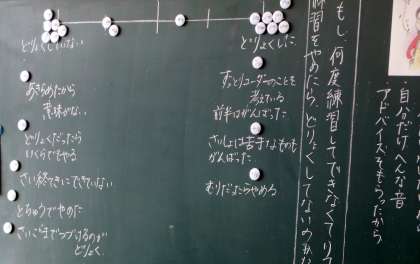 どりょくしていない
あきらめたから
意味がない
どりょくだったら
いくらでもやる
さい終てきにできていない
とちゅうでやめた
さいごまでつづけるのが
どりょく
どりょくした
ずっとリコーダーのことを
考えている
前半はがんばった
さいしょは苦手なものも
がんばった
むりだったらやめる
もし、何度練習してできなくてリコ
練習をやめたら、どりょくしてないのかな
自分だけへんな音
アドバイスをもらったから